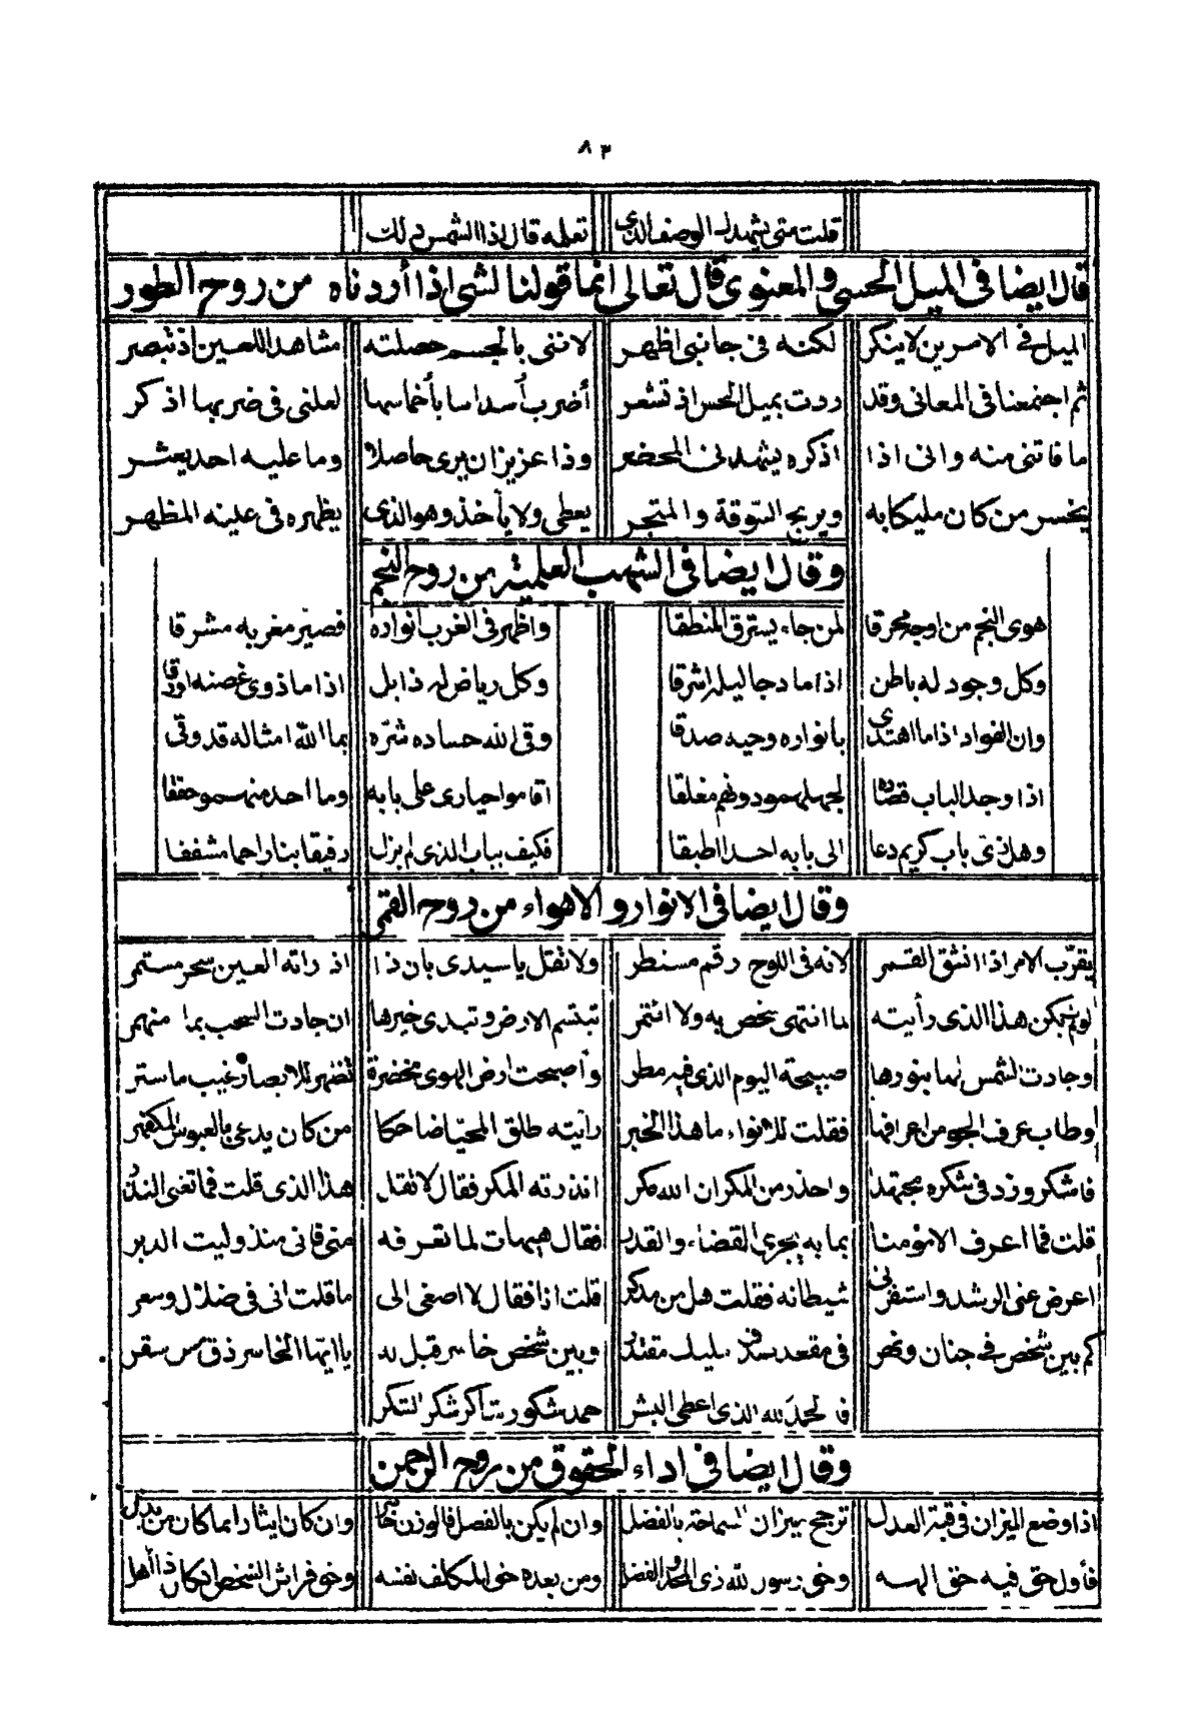 ٨٣
قلت متى يشهد لـ الوصف الذى تعلمه قال اذا الشمس دلك
قال ايضا فى الميل الحسى والمعنوى قال تعالى انما قولنا لشئ اذا أردناه من روح الطور
الميل فى الامرين لا ينكر لكنه فى جانبى اظهر لاننى بالجسم حصلته مشاهد اللعين اذ تبصر
ثم اجتمعنا فى المعانى وقد ردت بميل الحس اذ تشعر أضرب أسداسا بأخماسها لعلنى فى ضربها اذكر
ما فاتنى منه وانى اذا اذكره يشهدنى المحضر وذا عزيز ان يرى حاصلا وما عليه احد يعثر
يخسر من كان مليكا به ويربح السّوقة والمتجر يعطى ولا يأخذ وهو الذى يظهره فى عينه المظهر
وقال ايضا فى الشهب العلمية من روح النجم
هوى النجم من اوجه محرقا لمن جاء يسترق المنطقا واظهر فى الغرب انواره فصيّر مغربه مشرقا
وكل وجود له باطن اذا ما دجا ليله اشرقا وكل رياض له ذابل اذا ما ذوى غصنه اورقا
وان الفواد اذا ما اهتدى بأنواره وحيه صدقا وقى الله حساده شرّه بما الله امثاله قد وقى
اذا وجد الباب قصاده لجهلهمو دونهم مغلقا اقاموا حيارى على بابه وما احد منهمو حققا
وهل ذى باب كريم دعا الى بابه احدا اطبقا فكيف بباب الذى لم يزل رفيقا بنا راحما مشفقا
وقال ايضا فى الانوار والاهواء من روح القمر
يقرّب الامر اذا انشق القمر لانه فى اللوح رقم مستطر ولا تقل يا سيدى بان ذا اذ راته العين سحر مستمر
لو لم يكن هذا الذى رأيته لما انتهى شخص به ولا ائتمر تبتسم الارض وتبدى خيرها ان جادت السحب بما منهمر
وجادت الشمس لها بنورها صبيحة اليوم الذى فيه مطر وأصبحت ارض الهوى مخضرة تظهر للابصار غيب ما ستر
وطاب عرف الجو من اعرافها فقلت للانواء ما هذا الخبر رأيته طلق المحيّا ضاحكا من كان يدعى بالعبوس المكفهر
فاشكر وزد فى شكره مجتهدا واحذر من المكر ان الله مكر انذرته المكر فقال لا تقل هذا الذى قلت فما تغنى النذر
قلت فما اعرف الا مؤمنا بما به يجرى القضاء والقدر فقال هيهات لما تعرفه متى فانى منذ وليت الدبر
اعرض عنى الرشد واستفزنى شيطانه فقلت هل من مدكر قلت اذا فقال لا اصغى الى ما قلت انى فى ضلال وسعر
كم بين شخص فى جنان ونهر فى مقعد صدق مليك مقتدر وبين شخص خاسر قيل له يا ايها الخاسر ذق مس سقر
فالحمد لله الذى اعطى البشر حمد شكور شاكر شكر الشكر
وقال ايضا فى اداء الحقوق من روح الرحمن
اذا وضع الميزان فى قبة العدل ترجح ميزان السماحة بالفضل وان لم يكن بالفصل فالوزن خاسر وان كان ايثارا بما كان من بذل
فأول حق فيه حق الهه وحق رسول الله ذى المجد والفضل ومن بعده حق المكلف نفسه وحق فراش الشخص ان كان ذا أهل